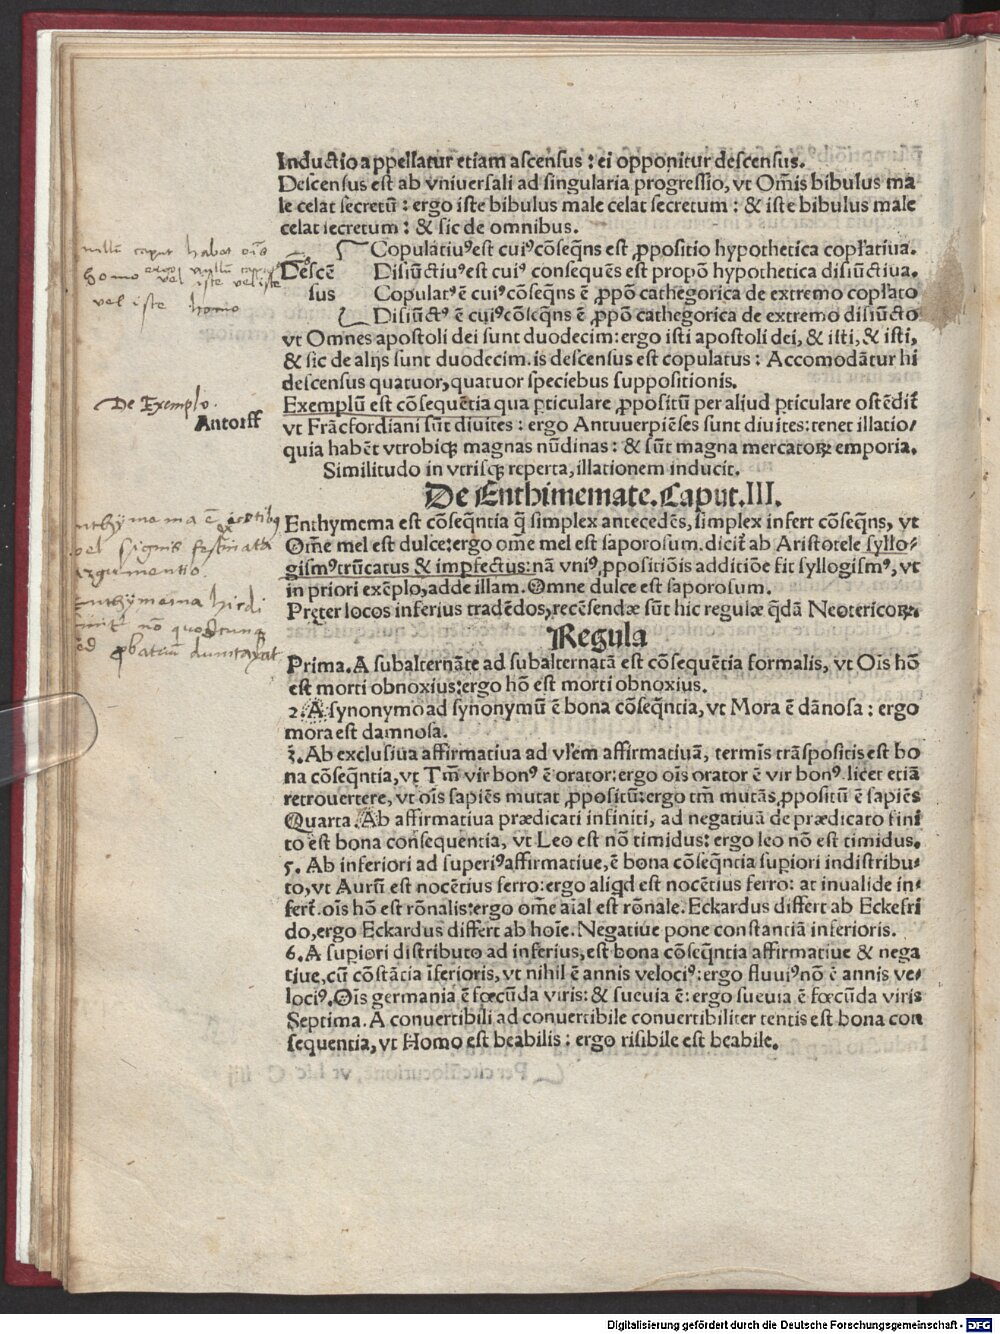 Inductio appellatur etiam ascensus : ei opponitur descensus.
Descensus est ab vniuersali ad singularia progressio, vt Om̄is bibulus ma
le celat secretū : ergo iste bibulus male celat secretum : & iste bibulus male
celat secretum : & sic de omnibus.
Copulatiuꝰ est cuiꝰ cōseq̄ns est ꝓpositio hypothetica copl̄atiua.
Descē Disiūctiuꝰ est cuiꝰ consequēs est propō hypothetica disiūctiua.
sus Copulatꝰ ē cuiꝰ cōseq̄ns ē ꝓpō cathegorica de extremo copl̄ato
Disiūctꝰ ē cuiꝰ cōseq̄ns ē ꝓpō cathegorica de extremo disiūcto
vt Omnes apostoli dei sunt duodecim: ergo isti apostoli dei, & isti, & isti,
& sic de alijs sunt duodecim. is descensus est copulatus : Accomodātur hi
descensus quatuor, quatuor speciebus suppositionis.
De Exemplo.
Exemplū est cōsequētia qua ꝑticulare ꝓpositū per aliud ꝑticulare ostēdit̄
Antorff
vt Frācfordiani sūt diuites : ergo Antuuerpiēses sunt diuites: tenet illatio/
quia habēt vtrobiqꝫ magnas nūdinas : & sūt magna mercatoꝝ emporia.
Similitudo in vtrisqꝫ reperta, illationem inducit.
De Enthimemate. Caput. III.
Enthymema est cōseq̄ntia q̄ simplex antecedēs, simplex infert cōseq̄ns, vt
Om̄e mel est dulce: ergo om̄e mel est saporosum. dicit̄ ab Aristotele syllo-
gismꝰ trūcatus & imꝑfectus: nā vniꝰ ꝓpositiōis additiōe fit syllogismꝰ, vt
in priori exēplo, adde illam. Omne dulce est saporosum.
Pręter locos inferius tradēdos, recēsendæ sūt hic regulæ q̄dā Neotericoꝝ.
Regula
Prima. A subalternāte ad subalternatā est cōsequētia formalis, vt Ois hō
est morti obnoxius: ergo hō est morti obnoxius.
2. A synonymo ad synonymū ē bona cōseq̄ntia, vt Mora ē dānosa : ergo
mora est damnosa.
3. Ab exclusiua affirmatiua ad vl̄em affirmatiuā, termīs trāspositis est bo
na cōseq̄ntia, vt Tm̄ vir bonꝰ ē orator: ergo oīs orator ē vir bonꝰ. licet etiā
retrouertere, vt oīs sapiēs mutat ꝓpositū: ergo tm̄ mutās ꝓpositū ē sapiēs
Quarta. Ab affirmatiua prædicati infiniti, ad negatiuā de prædicato fini
to est bona consequentia, vt Leo est nō timidus: ergo leo nō est timidus.
5. Ab inferiori ad superiꝰ affirmatiue, ē bona cōseq̄ntia suꝑiori indistribu-
to, vt Aurū est nocētius ferro: ergo aliqd est nocētius ferro: at inualide in-
fert̄. oīs hō est rōnalis: ergo om̄e aīal est rōnale. Eckardus differt ab Eckefri
do, ergo Eckardus differt ab hoīe. Negatiue pone constantiā inferioris.
6. A suꝑiori distributo ad inferius, est bona cōseq̄ntia affirmatiue & nega
tiue, cū cōstātia īferioris, vt nihil ē annis velociꝰ: ergo fluuiꝰ nō ē annis ve-
lociꝰ. Ois germania ē fœcūda viris: & sueuia ē: ergo sueuia ē fœcūda viris
Septima. A conuertibili ad conuertibile conuertibiliter tentis est bona con
sequentia, vt Homo est beabilis : ergo risibile est beabile.
Digitalisierung gefördert durch die Deutsche Forschungsgemeinschaft - DFG